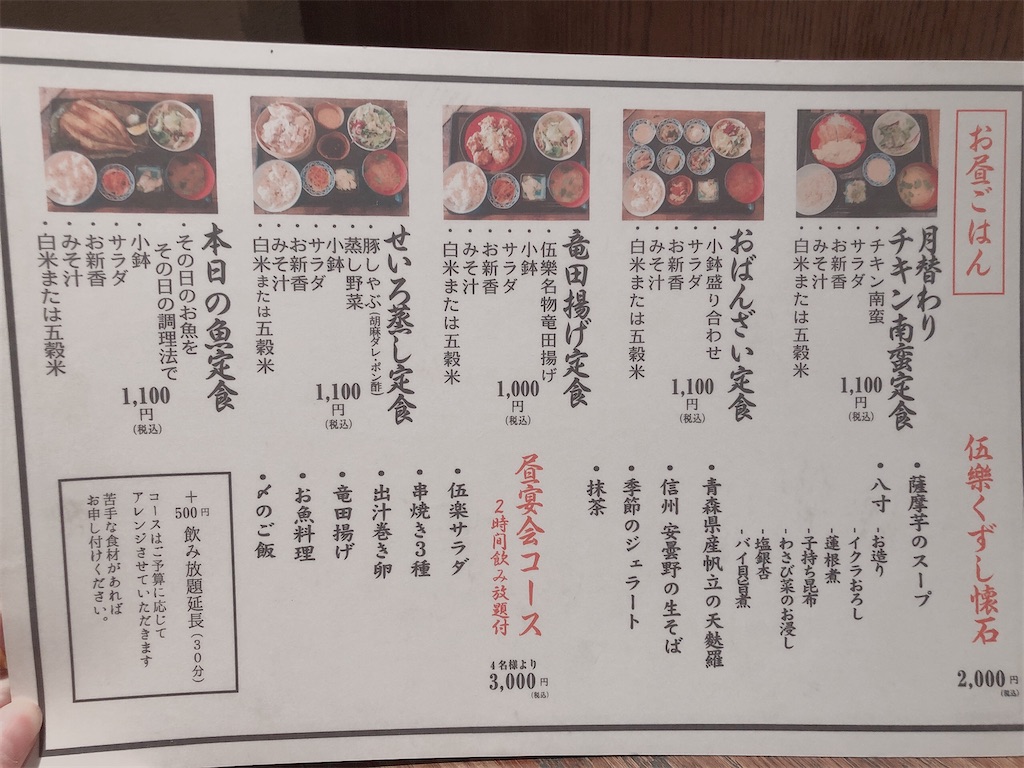 お昼ごはん
月替わり
チキン南蛮定食
・チキン南蛮
・サラダ
・お新香
・みそ汁
・白米または五穀米
1,100円
(税込)
おばんざい定食
・小鉢盛り合わせ
・サラダ
・お新香
・みそ汁
・白米または五穀米
1,100円
(税込)
竜田揚げ定食
・伍樂名物竜田揚げ
・小鉢
・サラダ
・お新香
・みそ汁
・白米または五穀米
1,000円
(税込)
せいろ蒸し定食
・豚しゃぶ(胡麻ダレ・ポン酢)
・蒸し野菜
・小鉢
・サラダ
・お新香
・みそ汁
・白米または五穀米
1,100円
(税込)
本日の魚定食
・その日のお魚を
その日の調理法で
・小鉢
・サラダ
・お新香
・みそ汁
・白米または五穀米
1,100円
(税込)
伍樂くずし懐石
2,000円
(税込)
・薩摩芋のスープ
・八寸
-お造り
-イクラおろし
-蓮根煮
-子持ち昆布
-わさび菜のお浸し
-塩銀杏
-バイ貝旨煮
・青森県産帆立の天麩羅
・信州 安曇野の生そば
・季節のジェラート
・抹茶
昼宴会コース
2時間飲み放題付
4名様より
3,000円
(税込)
・伍楽サラダ
・串焼き3種
・出汁巻き卵
・竜田揚げ
・お魚料理
・〆のご飯
＋500円 飲み放題延長(30分)
コースはご予算に応じて
アレンジさせていただきます
苦手な食材があれば
お申し付けください。